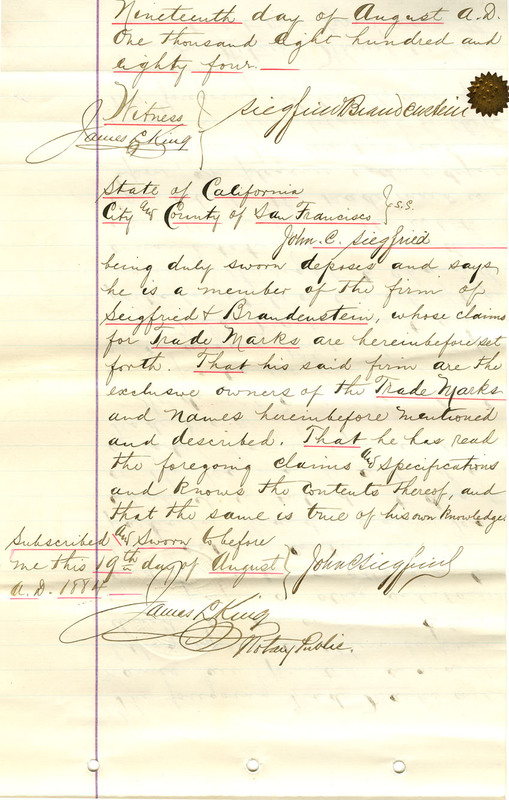 Nineteenth day of August A.D.
One thousand eight hundred and
eighty four.
Witness
Siegfried & Brandenstein
James L. King
State of California
City and County of San Francisco } S.S.
John. C. Siegfried
being duly sworn deposes and says
he is a member of the firm of
Seigfried & Brandenstein, whose claims
for Trade Marks are hereinbefore set
forth. That his said firm are the
exclusive owners of the Trade Marks
and Names hereinbefore mentioned
and described. That he has read
the foregoing claims and specifications
and knows the contents thereof, and
that the same is true of his own knowledge
Subscribed and Sworn to before
me this 19th day of August
A.D. 1884
John C Siegfried
James L. King
Notary Public.